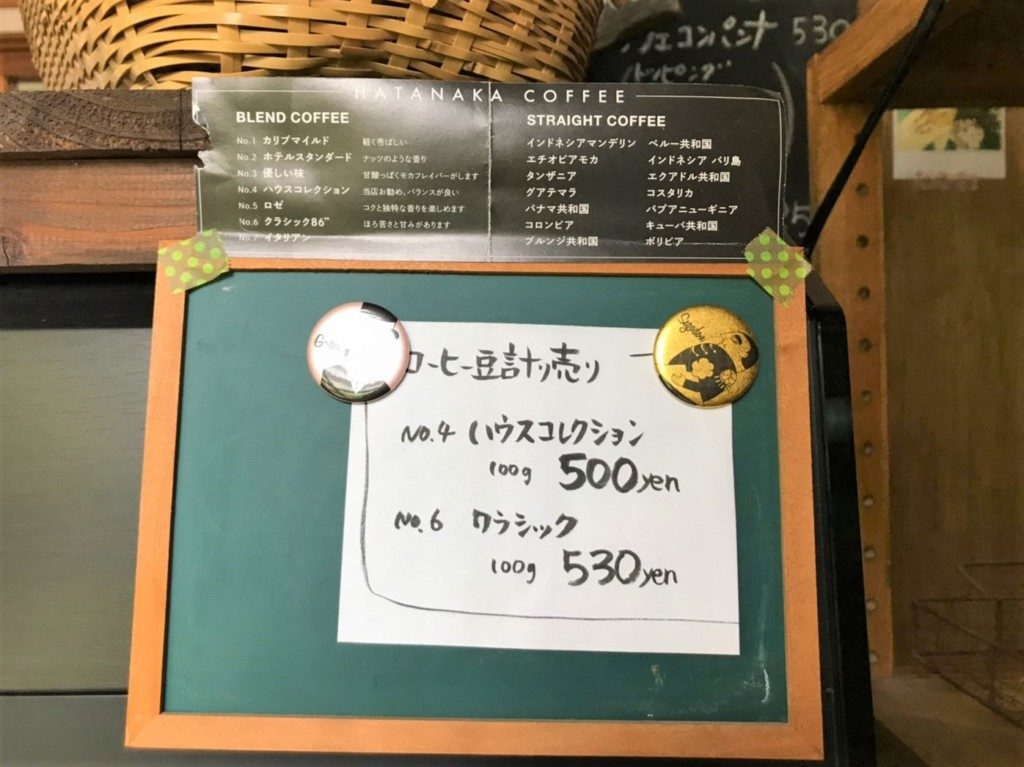 コンパンナ 530
トッピング
HATANAKA COFFEE
BLEND COFFEE
No.1 カリブマイルド 軽く香ばしい
No.2 ホテルスタンダード ナッツのような香り
No.3 優しい味 甘酸っぱくモカフレイバーがします
No.4 ハウスコレクション 当店お勧め、バランスが良い
No.5 ロゼ コクと独特な香りを楽しめます
No.6 クラシック86" ほろ苦さと甘みがあります
No.7 イタリアン
STRAIGHT COFFEE
インドネシアマンデリン ペルー共和国
エチオピアモカ インドネシア バリ島
タンザニア エクアドル共和国
グアテマラ コスタリカ
パナマ共和国 パプアニューギニア
コロンビア キューバ共和国
ブルンジ共和国 ボリビア
コーヒー豆計り売り
No.4 ハウスコレクション
100g 500yen
No.6 クラシック
100g 530yen